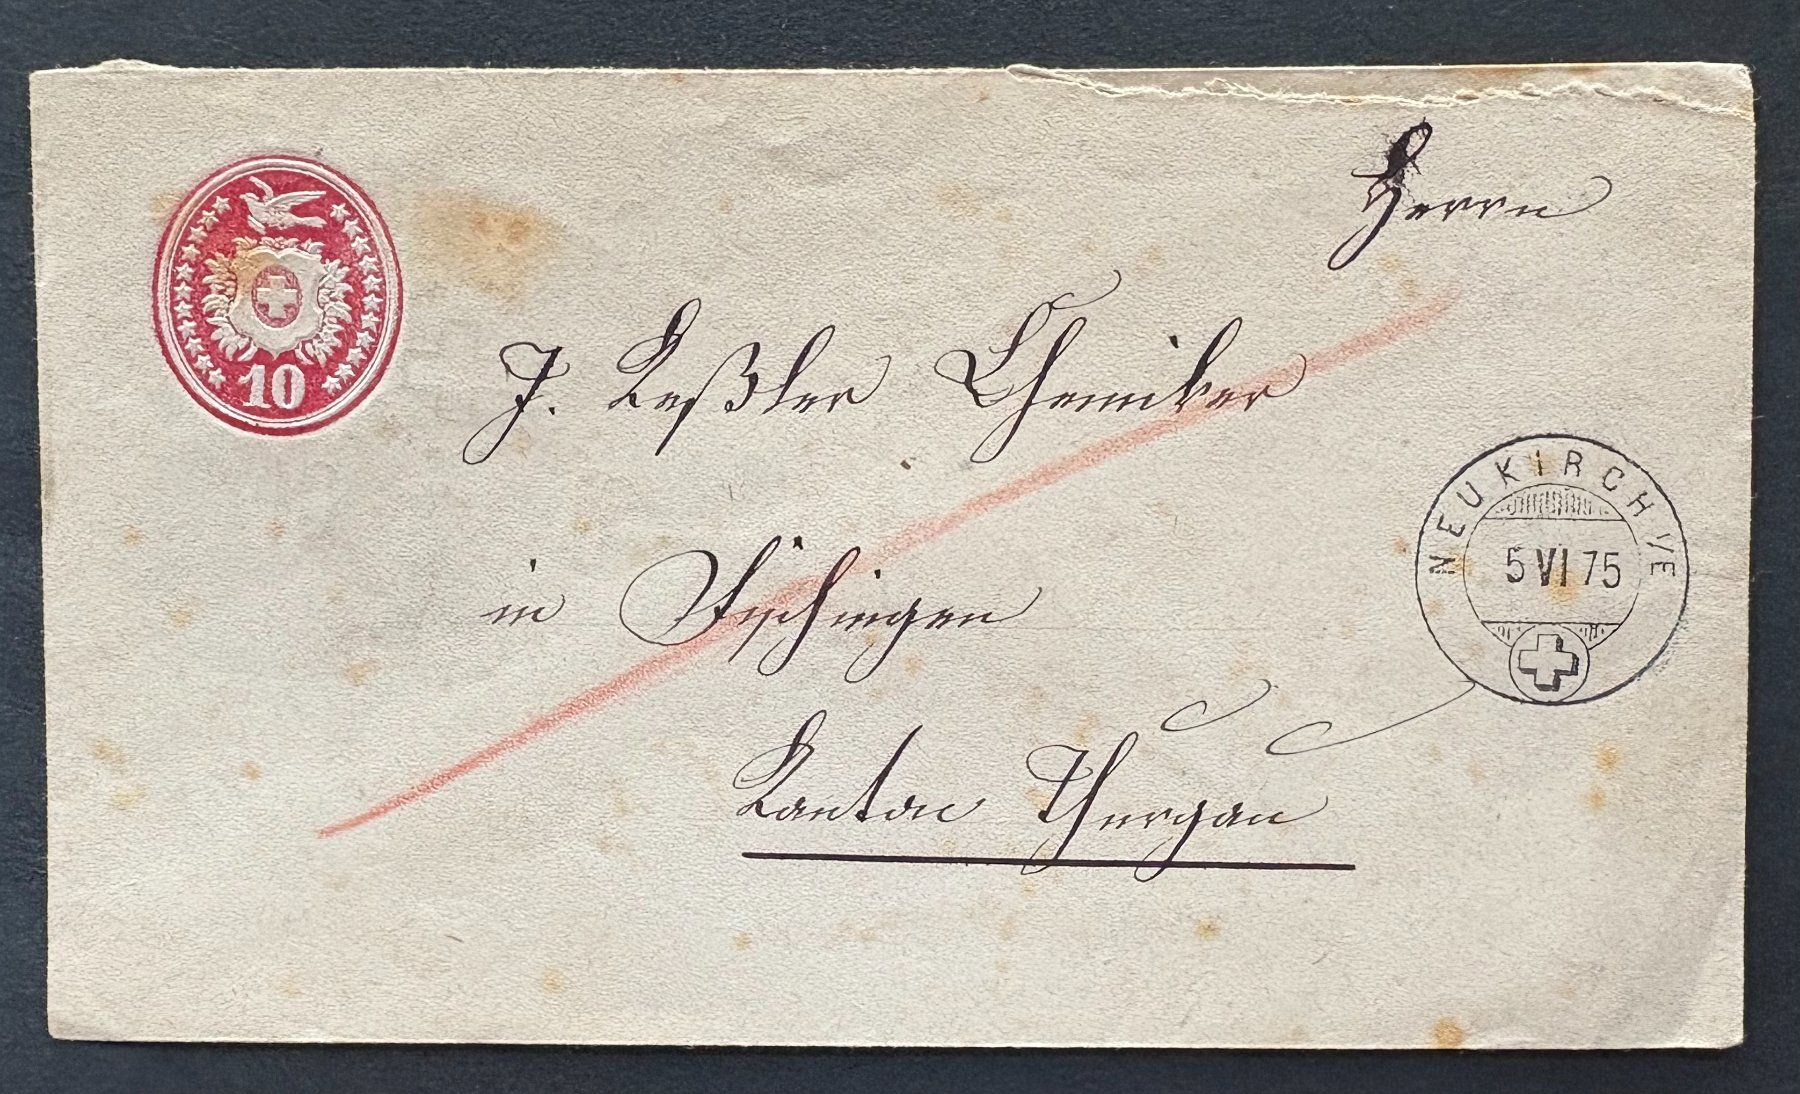 10
Herrn
J. Keßler Chemiker
in Fischingen
Kanton Thurgau
NEUKIRCH/E
5 VI 75